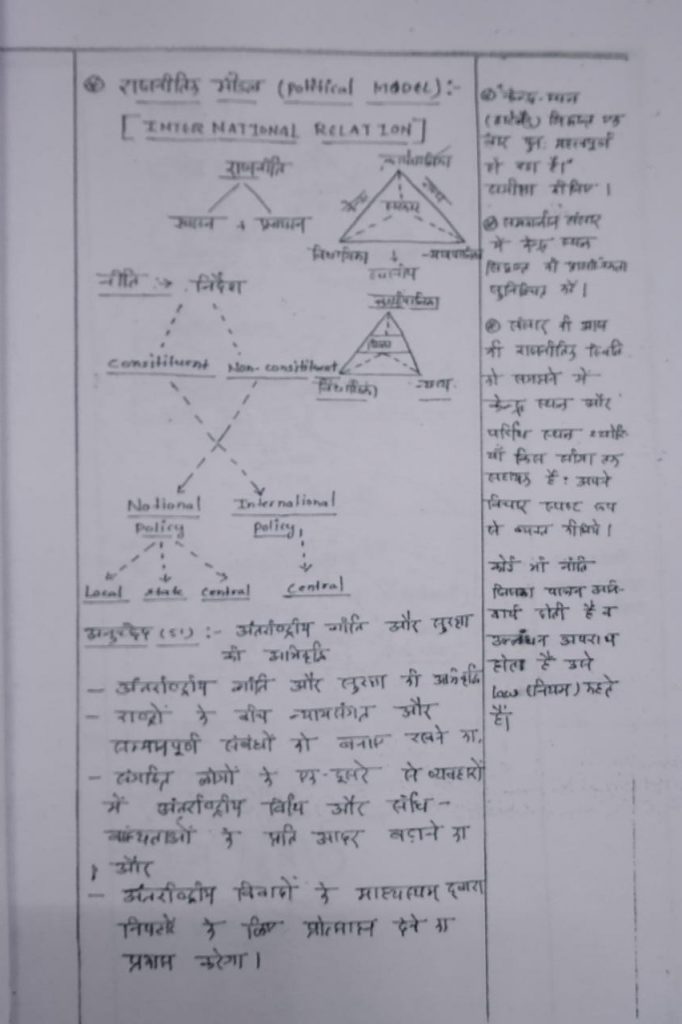 राजनीतिक मॉडल (Political MODEL):-
[INTERNATIONAL RELATION]
राजनीति
+ प्रबंधन
कार्यपालिका
विधायिका
न्यायपालिका
नीति → निर्देश
कार्यपालिका
विधायिका
न्याय.
Constituent
Non-constituent
National Policy
International Policy
Local State Central
Central
अनुच्छेद (51) :- अंतर्राष्ट्रीय शांति और सुरक्षा
की अभिवृद्धि
- अंतर्राष्ट्रीय शांति और सुरक्षा की अभिवृद्धि
- राष्ट्रों के बीच न्यायसंगत और
सम्मानपूर्ण संबंधों को बनाए रखने का,
- संगठित लोगों के एक-दूसरे से व्यवहारों
में अंतर्राष्ट्रीय विधि और संधि-
बाध्यताओं के प्रति आदर बढ़ाने का
, और
- अंतर्राष्ट्रीय विवादों के माध्यस्थम् द्वारा
निपटारे के लिए प्रोत्साहन देने का
प्रयास करेगा।
केन्द्र-स्थल
(हार्टलैंड) सिद्धान्त एक
बार पुनः महत्वपूर्ण
हो गया है।"
समीक्षा कीजिए।
समकालीन संसार
में केन्द्र स्थल
सिद्धान्त की प्रासंगिकता
सुनिश्चित करें।
संसार की आज
की राजनीतिक स्थिति
को समझने में
केन्द्र स्थल और
परिधि स्थल
किस सीमा तक
सहायक है? अपने
विचार स्पष्ट रूप
से व्यक्त कीजिये।
कोई भी नीति
जिसका पालन अनि-
वार्य होती है व
उल्लंघन अपराध
होता है उसे
Law (नियम) कहते
हैं।